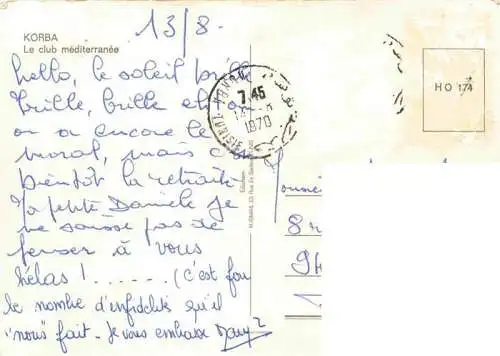 KORBA
Le club méditerranée
13/8.
hello, le soleil brille
brille, brille et on
on a encore le
moral, mais c'est
bientôt la retraite
Ma petite Danièle je
ne saisse pas de
penser à vous
hélas ! ...... (c'est fou
le nombre d'infidélités qu'il
"nous" fait. Je vous embrasse Dany 2
7.45
1970
TUNISIE
H O 174